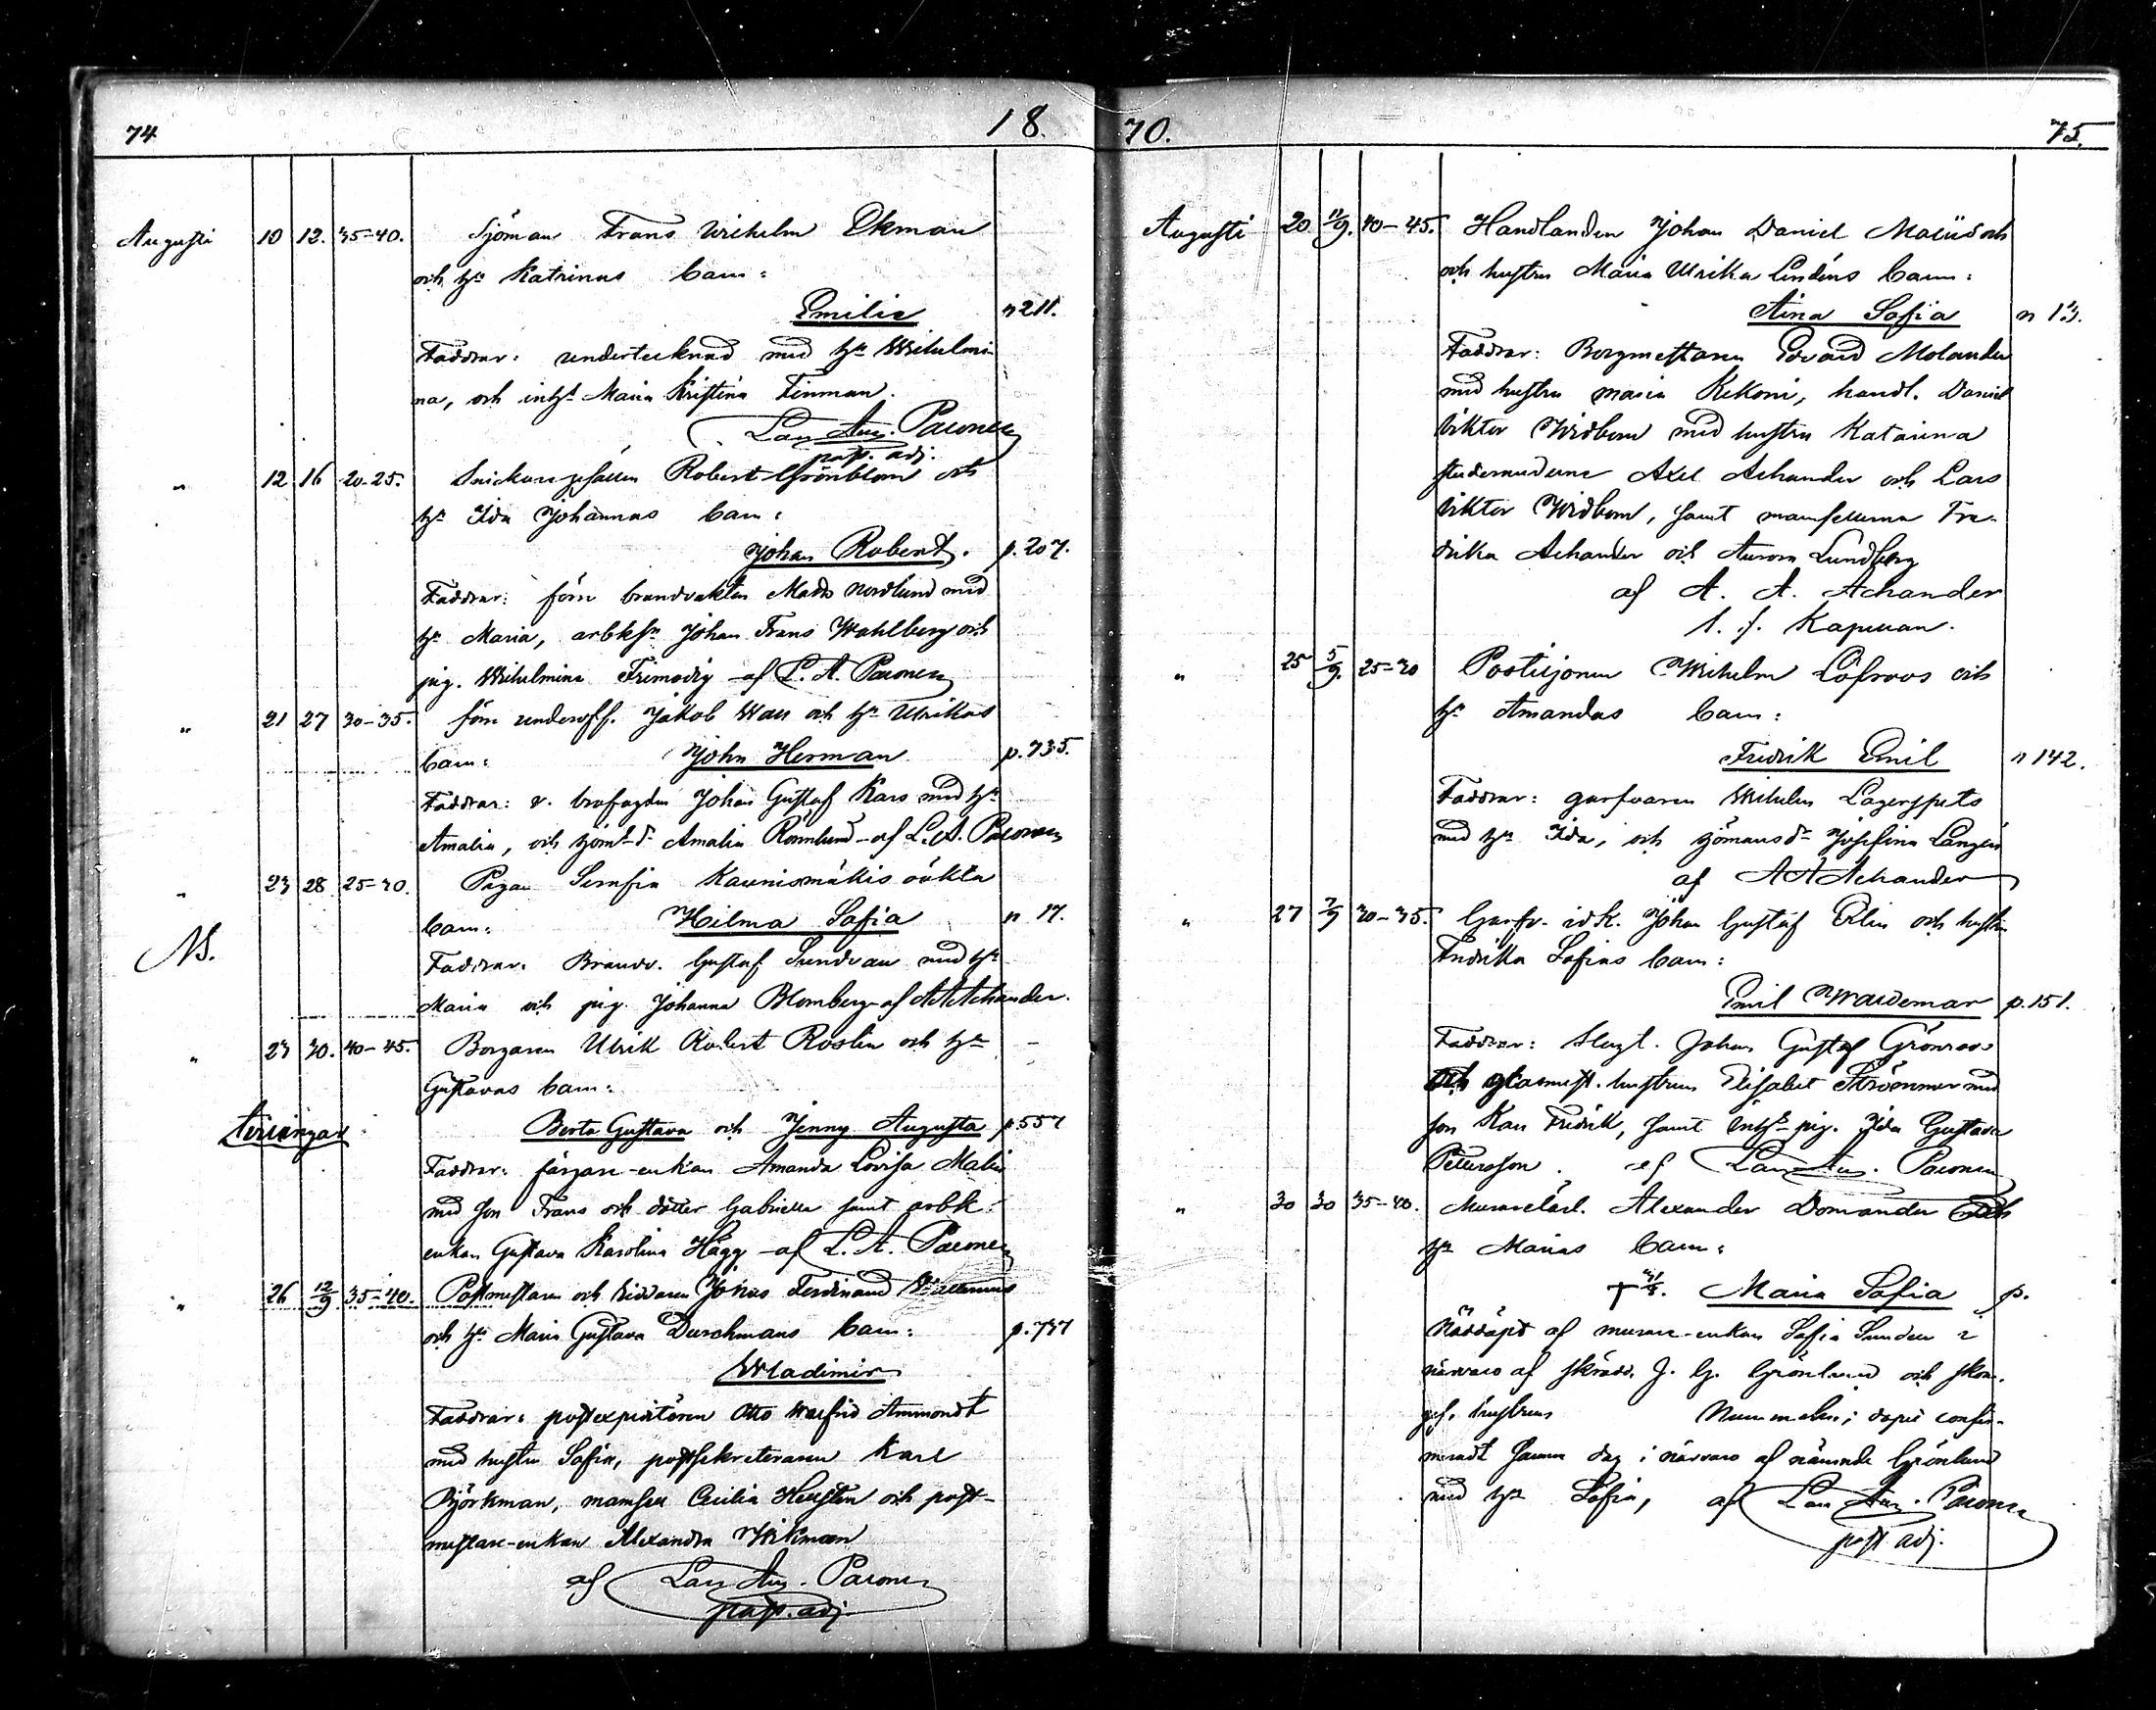 74
18.
Augusti 10 12. 35-40. Sjöman Frans Wilhelm Ekman
och hu Katrinas barn:
Emilie n 211.
Faddrar: undertecknad med hu Wilhelmi-
na, och inhs Maria Kristina Finman.
Lars Aug. Paronen
past. adj.
" 12 16 20-25. Snickaregesällen Robert Grönblom och
hu Ida Johannas barn:
Johan Robert. p. 207.
Faddrar: förre brandvakten Mats Nordlund med
hu Maria, arbksn Johan Frans Wahlberg och
pig. Wilhelmina Frimodig af L. A. Paronen
" 21 27 30-35. förre underoff. Jakob Wass och hu Ulrikas
barn: John Herman p. 735.
Faddrar: v. brofogden Johan Gustaf Kars med hu
Amalia, och sjöm-dr Amalia Rönnlund - af L. A. Paronen
" 23 28 25-30. Pigan Serafia Kaunismäkis oäkta
barn: Hilma Sofia n 17.
NB.
Faddrar: Brandv. Gustaf Sundvall med hu
Maria och pig. Johanna Blomberg - af A A Achander.
" 23 30. 40-45. Borgaren Ulrik Robert Roslin och hu
Gustavas barn:
tvillingar
Berta Gustava och Jenny Augusta p 557
Faddrar: färgare-enkan Amanda Lovisa Malin
med son Frans och dotter Gabriella samt arbk.-
enkan Gustava Karolina Hägg - af L. A. Paronen
" 26 12/9 35-40. Postmästaren och Riddaren Jonas Ferdinand
och hu Maria Gustava Durchmans barn: p. 737
Wladimir
Faddrar: postexpeditören Otto Walfrid Ammondt
med hustru Sofia, postsekreteraren Karl
Björkman, mamsell Cecilia Hellsten och post-
mästare-enkan Alexandra Wikman
af Lars Aug. Paronen
past. adj.
70.
75.
Augusti 20 11/9. 40-45. Handlanden Johan Daniel och
och hustru Maria Ulrika Lindéns barn:
Aina Sofia n 13.
Faddrar: Borgmästaren Edvard Molander
med hustru Maria Kekoni, handl. Daniel
Viktor Widbom med hustru Katarina
studerandene Axel Achander och Lars
Viktor Widbom, samt mamsellerna Fre-
drika Achander och Aurora Lundberg
af A. A. Achander
t. f. Kapellan.
" 25 5/9. 25-30 Postiljonen Wilhelm Löfroos och
hu Amandas barn:
Fredrik Emil n 142.
Faddrar: garfvaren Wilhelm Lagerspets
med hu Ida, och sjömansdr Josefina Langén
af A A Achander
" 27 7/9 30-35. Garfv. idk. Johan Gustaf Elin och hustru
Fredrika Sofias barn:
Emil Waldemar p. 151.
Faddrar: Slagt. Johan Gustaf Grönroos
och glasmäst. hustrun Elisabet Strömmer med
son Karl Fredrik, samt inhs pig. Ida Gustava
Pettersson. af Lars Aug. Paronen
" 30 30 35-40. Murarelärl. Alexander Domander och
hu Marias barn:
+ 31/8. Maria Sofia p.
Nöddöpt af murare-enkan Sofia Sundell i
närvaro af skrädd. J. G. Grönlund och skom.
ges. hustrun Nummelin; dopet confir-
meradt samma dag i närvaro af nämnde Grönlund
med hu Sofia, af Lars Aug. Paronen
past adj.